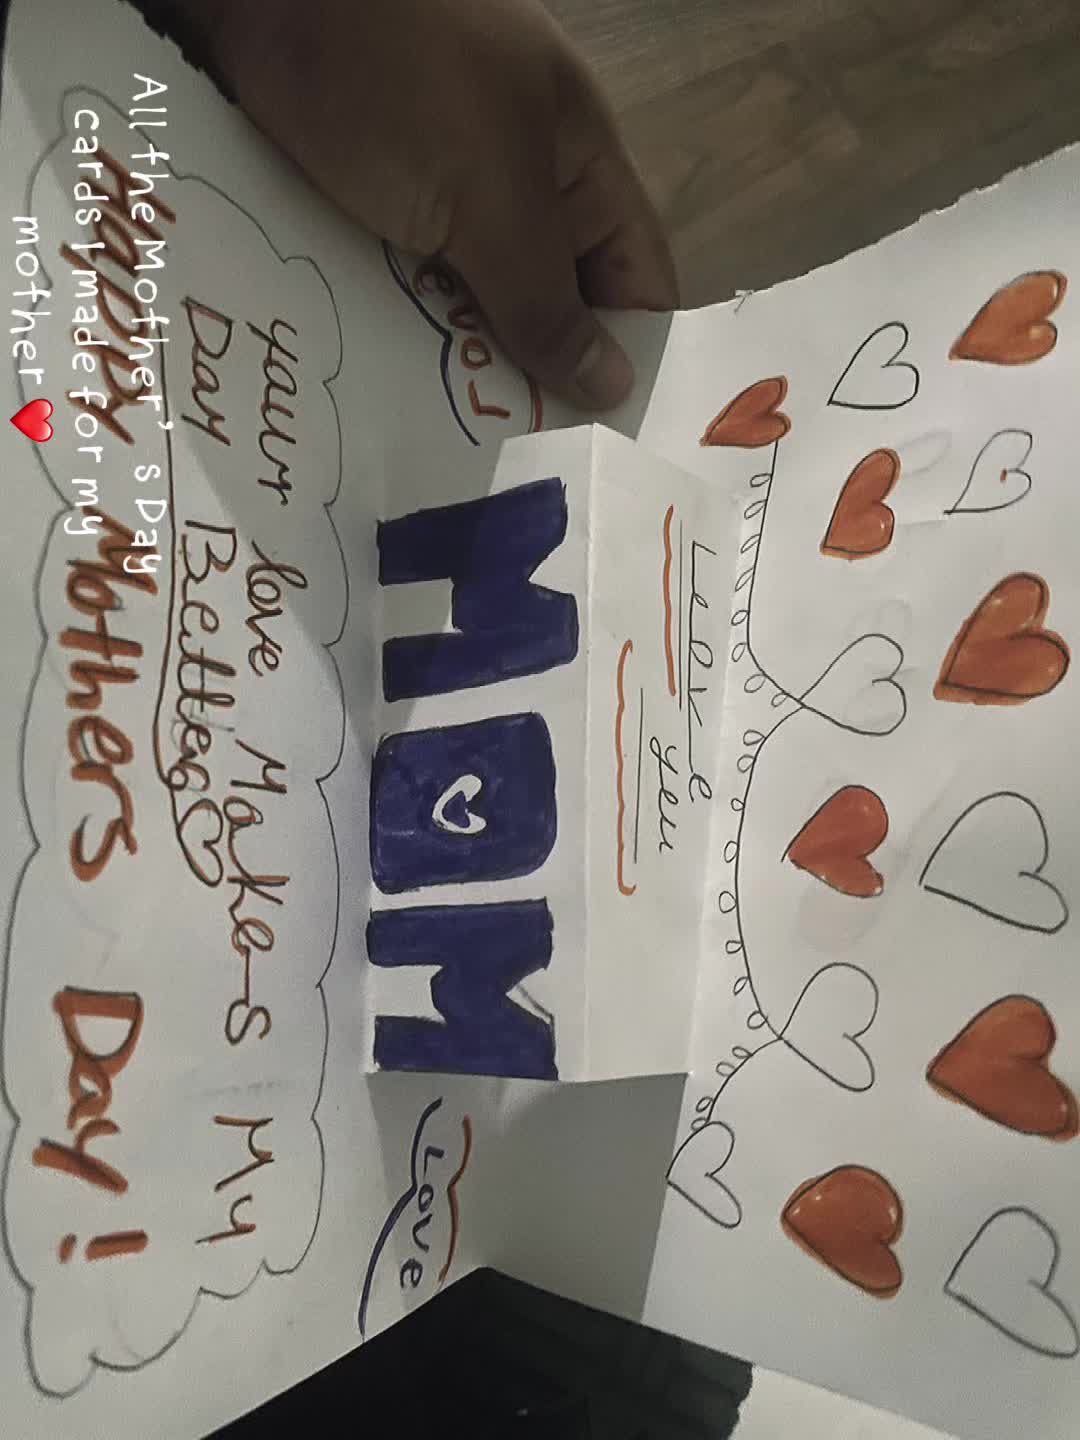 LovE
you
Love MOM Love
your love Makes My
Day Better
Happy Mothers Day!
All the Mother’s Day
cards I made for my
mother ❤️